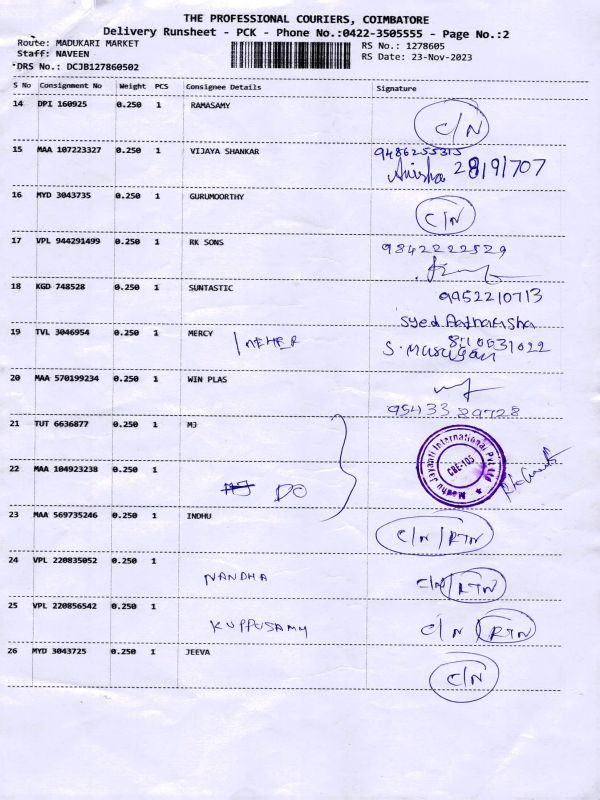 THE PROFESSIONAL COURIERS, COIMBATORE
Delivery Runsheet - PCK - Phone No.:0422-3505555 - Page No.:2
Route: MADUKARI MARKET
Staff: NAVEEN
DRS No.: DCJB127860502
RS No.: 1278605
RS Date: 23-Nov-2023
S No Consignment No Weight PCS Consignee Details Signature
14 DPI 160925 0.250 1 RAMASAMY C/N
15 MAA 107223327 0.250 1 VIJAYA SHANKAR 9486255315
Anisha 28/9/707
16 MYD 3043735 0.250 1 GURUMOORTHY C/N
17 VPL 944291499 0.250 1 RK SONS 9842222529
18 KGD 748528 0.250 1 SUNTASTIC 9952210713
Syed
19 TVL 3046954 0.250 1 MERCY
S. Murugan
20 MAA 570199234 0.250 1 WIN PLAS
21 TUT 6636877 0.250 1 MJ
Madhu Jayanti International Pvt Ltd
CBE-105
22 MAA 104923238 0.250 1 DO
23 MAA 569735246 0.250 1 INDHU C/N/RTN
24 VPL 220835052 0.250 1 NANDHA C/N/RTN
25 VPL 220856542 0.250 1 KUPPUSAMY C/N/RTN
26 MYD 3043725 0.250 1 JEEVA C/N